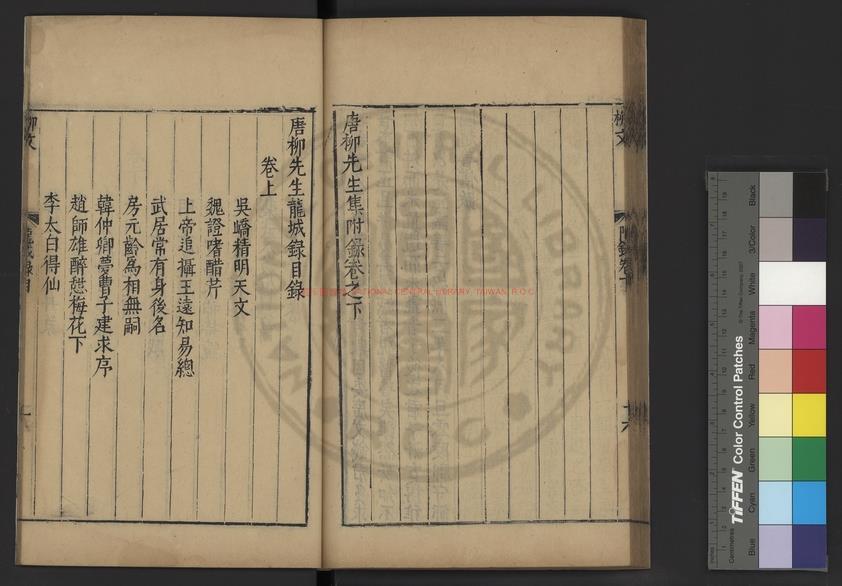 唐柳先生集附錄卷之下
唐柳先生龍城錄目錄
卷上
吳嶠精明天文
魏證嗜醋芹
上帝追攝王遠知易總
武居常有身後名
房元齡為相無嗣
韓仲卿夢曹子建求序
趙師雄醉憩梅花下
李太白得仙
柳文
柳文
NATIONAL CENTRAL LIBRARY, TAIWAN, R.O.C
TIFFEN Color Control Patches
© The Tiffen Company, 2007
Centimetres
Inches
Blue
Cyan
Green
Yellow
Red
Magenta
White
3/Color
Black